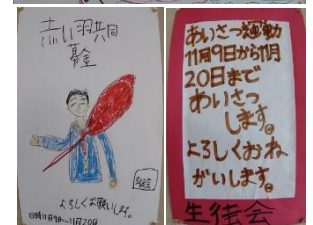 赤い羽共同
募金
よろしくお願いします。
日時11月9日～11月20日
あいさつ運動
11月9日から11月
20日まで
あいさつ
します。
よろしくおね
がいします。
生徒会